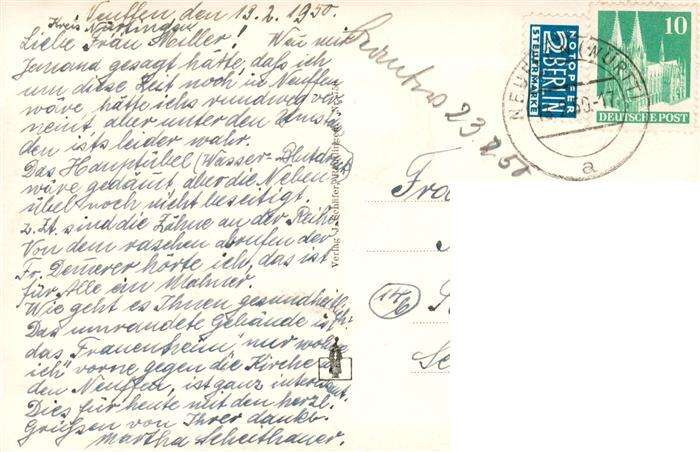 Neuffen den 13.2.1950.
Kreis Nürtingen
Liebe Frau Miller! Wenn mir
Jemand gesagt hätte, daß ich
um diese Zeit noch in Neuffen
wäre, hätte ichs rundweg ver
neint, aber unter den Umstän
den ists leider wahr.
Das Hauptübel (Wasser-Blutarm)
wäre gedämt aber die Neben
übel noch nicht beseitigt,
z. Zt. sind die Zähne an der Reihe.
Von dem raschen abrufen der
Fr. Demerer hörte ich, das ist
für Alle ein Mahner.
Wie geht es Ihnen gesundheitl.
Das umrandete Gebäude ist
das "Frauenheim", nur wohne
ich vorne gegen die Kirche
den Neuffen, ist ganz interessant.
Dies für heute mit den herzl.
Grüßen von Ihrer dankb.
Martha Scheithauer.
23.2.50
Verlag J. Schäfer,
NOTOPFER
2 BERLIN
STEUERMARKE
10
DEUTSCHE POST
NEUFFEN (WÜRTT)
a
Fra